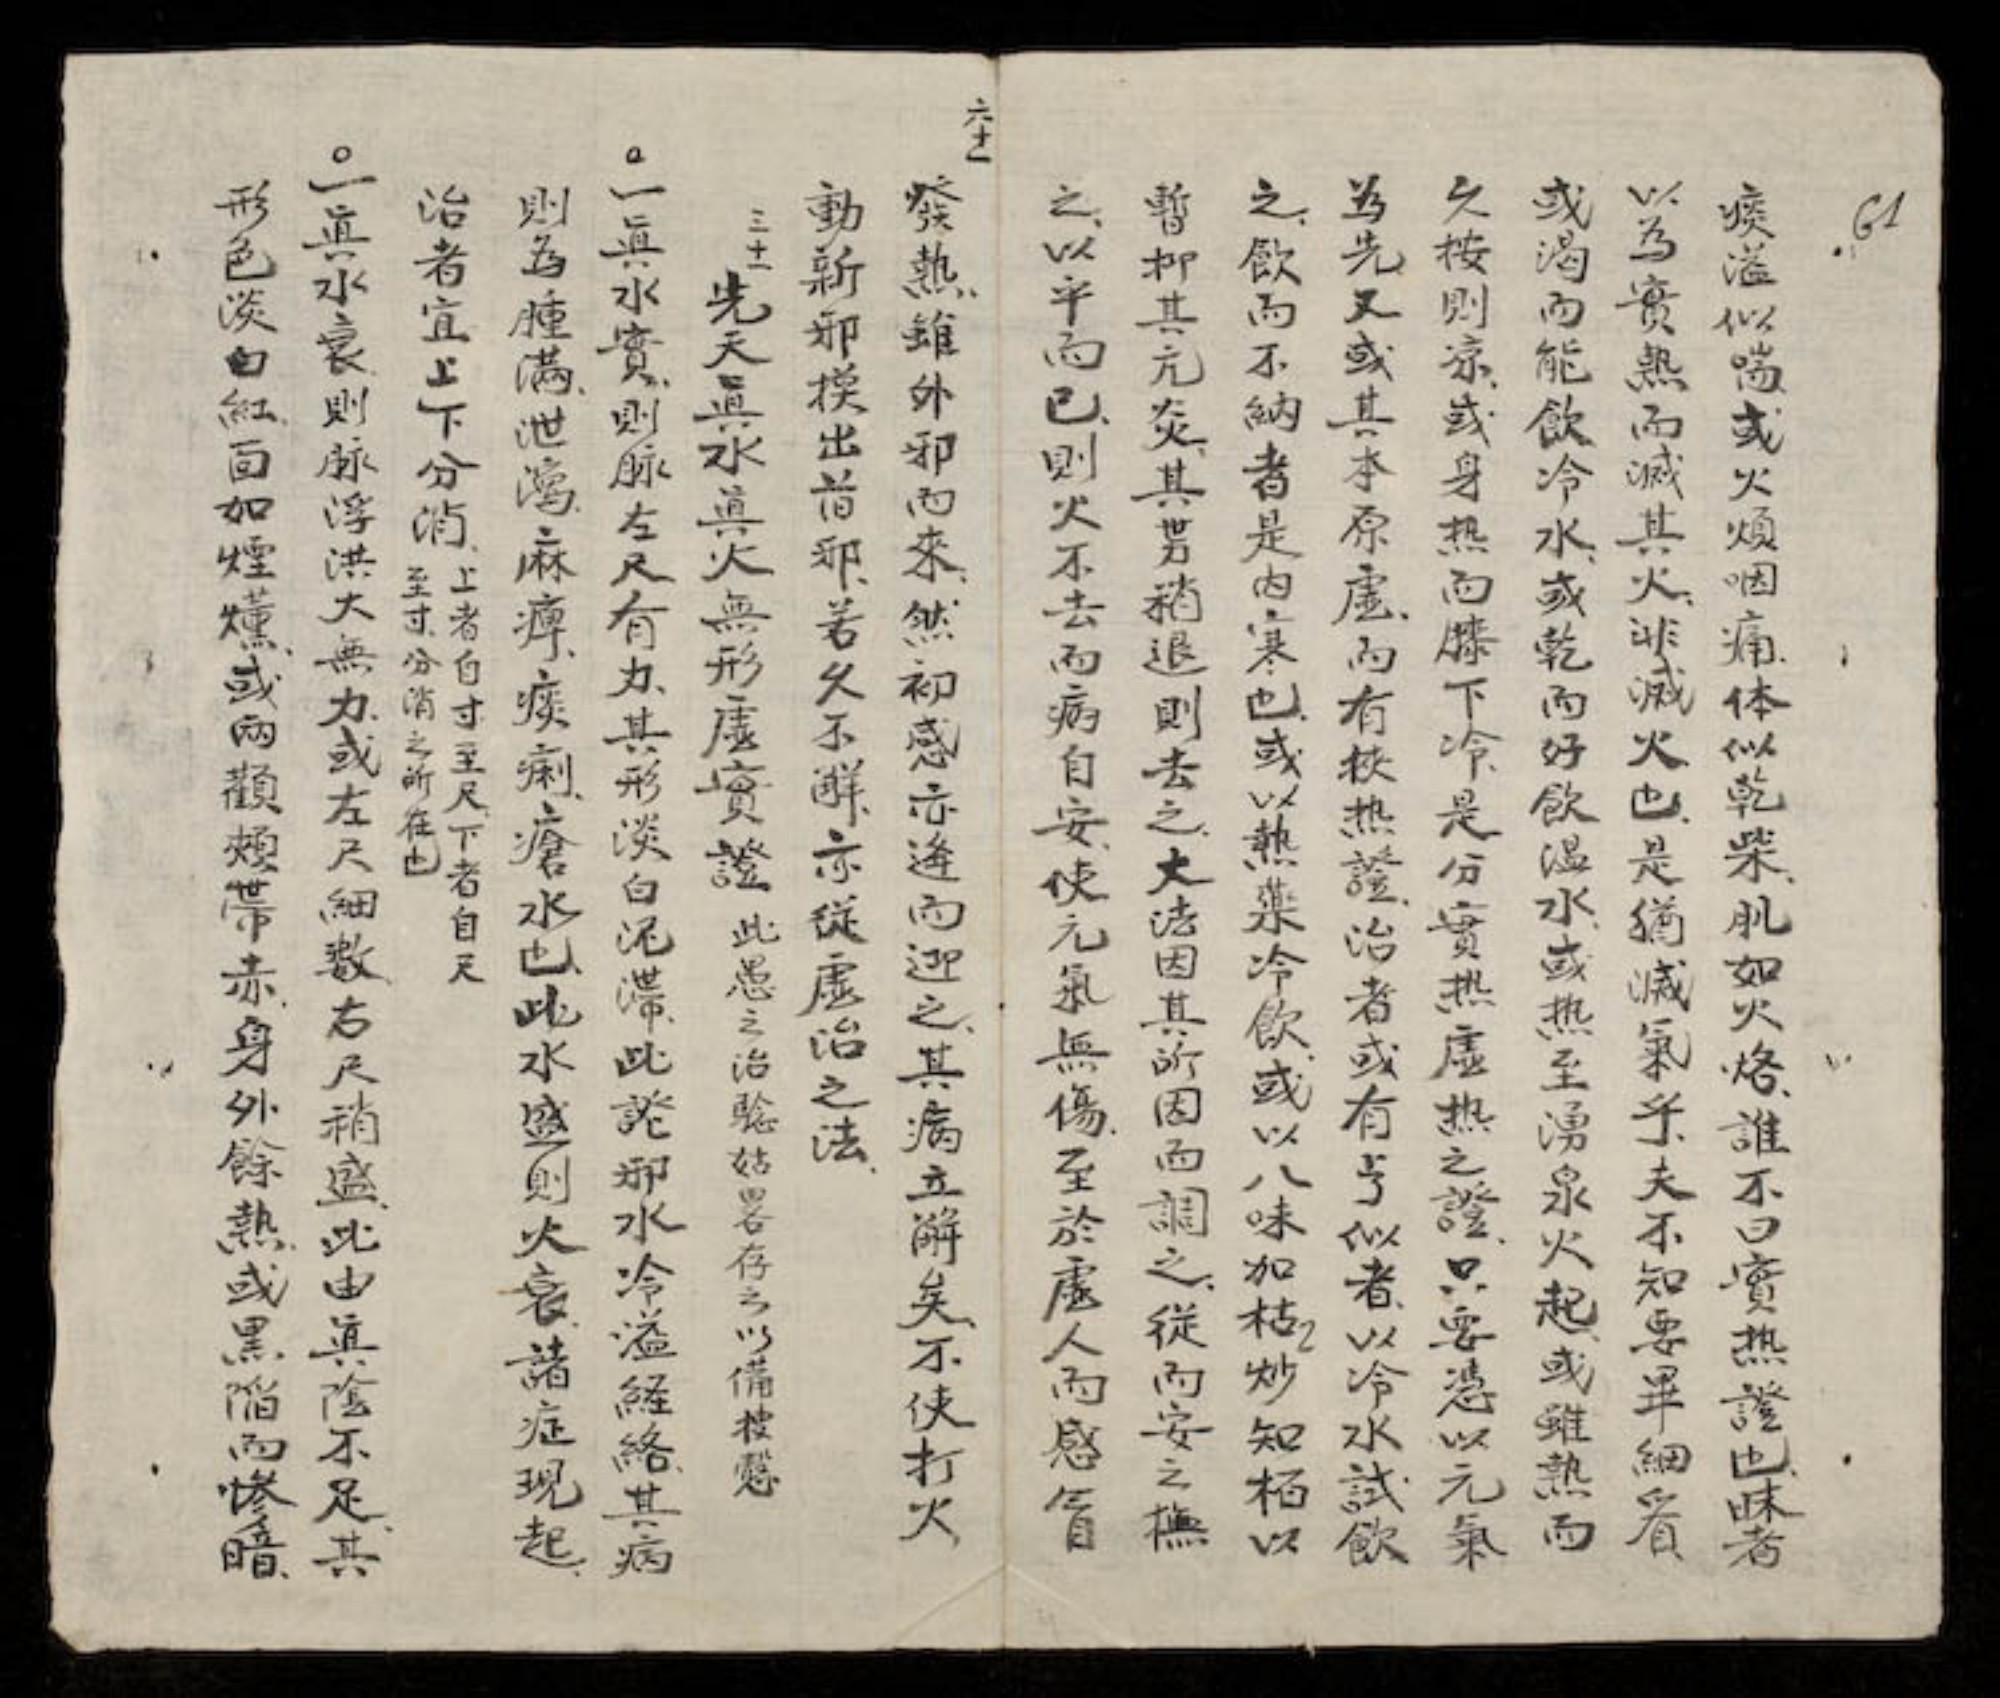 61
痰溢似喘、或火煩咽痛、体似乾柴、肌如火烙、誰不曰實热證也、昧者
以為實熱而滅其火、非滅火也、是猶滅氣乎、夫不知要畢細看
或渴而能飲冷水、或乾而好飲温水、或热至湧泉火起、或雖熱而
久按則凉、或身热而膝下冷、是分實热虛热之證、只要憑以元氣
為先、又或其本原虛、而有挾热證、治者或有乎似者、以冷水試飲
之、飲而不納者是內寒也、或以熱藥冷飲、或以八味加枯炒知栢以
暫抑其亢炎、其势稍退則去之、大法因其所因而調之、從而安之撫
之、以平而已、則火不去而病自安、使元氣無傷、至於虛人而感冒
六十一
發熱、雖外邪而來、然初感亦逢而迎之、其病立解矣、不使打火
動新邪、揆出旧邪、若久不觧、亦從虛治之法、
三十一 先天眞水眞火無形虛實證 此愚之治驗姑畧存之以備搜懸
一眞水實、則脉左尺有力、其形淡白泥滯、此證邪水冷溢経絡、其病
則為腫滿、泄瀉、麻痺、痰痢、瘡水也、此水盛則火衰、諸症現起、
治者宜上下分消、上者自寸至尺、下者自尺
至寸、分消之所在也
一眞水衰、則脉浮洪大無力、或左尺細數、右尺稍盛、此由眞陰不足、其
形色淡白紅、面如煙燻、或兩顴頰帶赤、身外餘熱、或黑陷而惨暗、